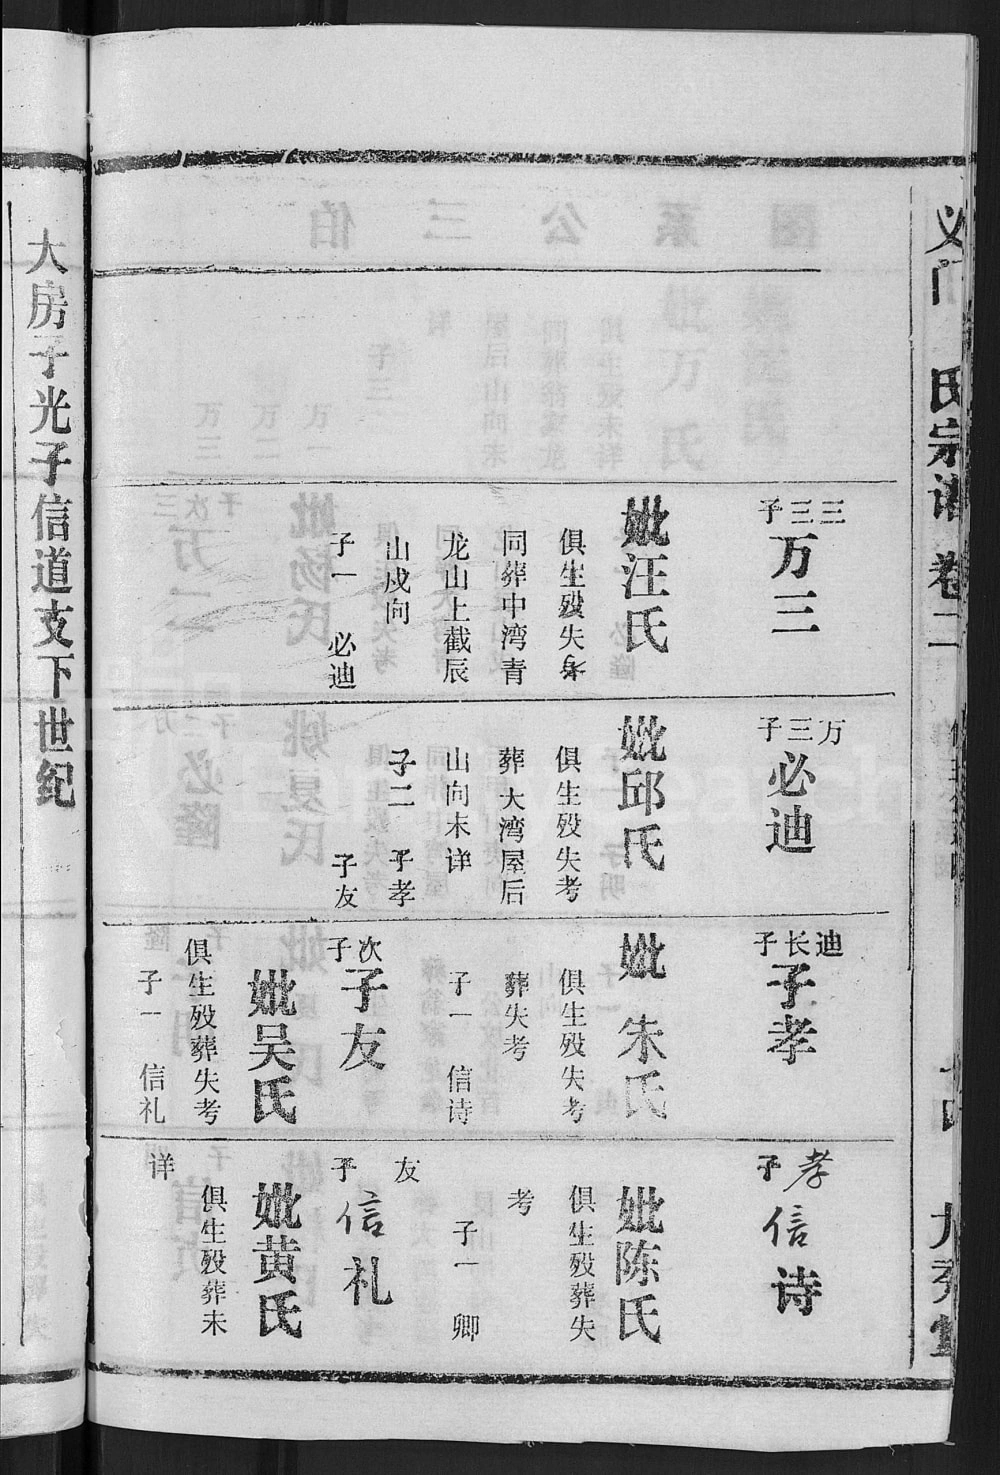 义门 氏宗谱 卷二
三三子
万三
妣汪氏
俱生殁失考
同葬中湾青
龙山上截辰
山戍向
子一 必迪
万三子
必迪
妣邱氏
俱生殁失考
葬大湾屋后
山向未详
子二 子孝
子友
迪长子
子孝
妣朱氏
俱生殁失考
葬失考
子一 信诗
次子
子友
妣吴氏
俱生殁葬失考
子一 信礼
孝子
信诗
妣陈氏
俱生殁葬失
考
子一 卿
友子
信礼
妣黄氏
俱生殁葬未
详
大房子光子信道支下世纪